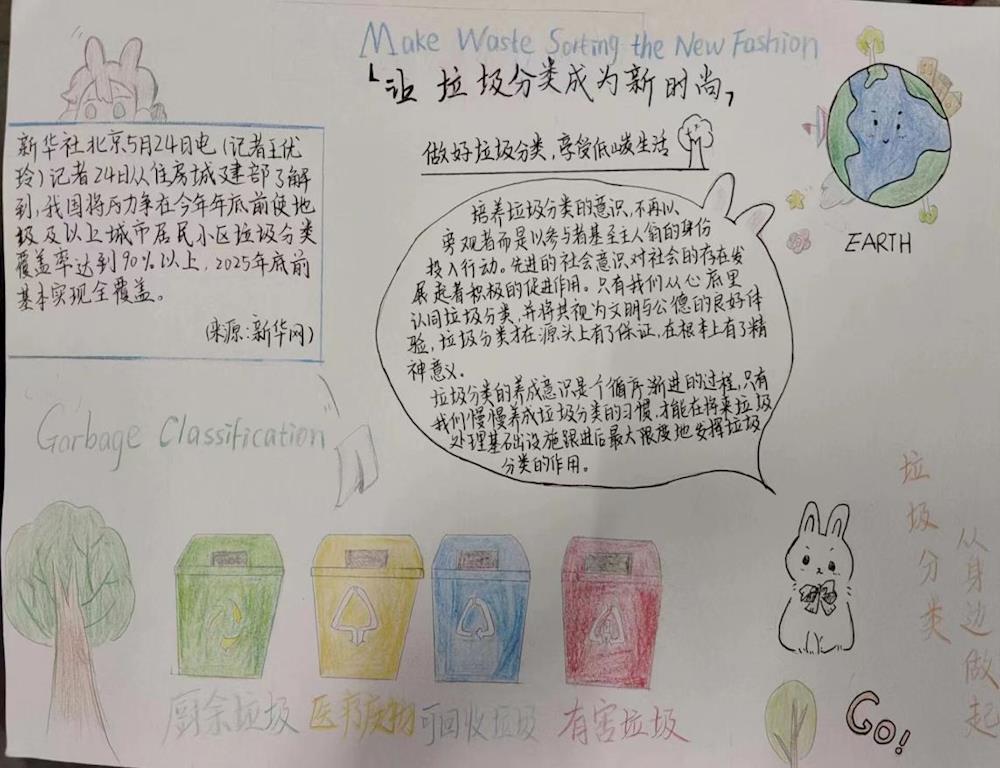 Make Waste Sorting the New Fashion
「让垃圾分类成为新时尚」
做好垃圾分类,享受低碳生活
新华社北京5月24日电(记者王优
玲)记者24日从住房城建部了解
到,我国将力争在今年年底前使地
级及以上城市居民小区垃圾分类
覆盖率达到90%以上,2025年底前
基本实现全覆盖。
(来源:新华网)
培养垃圾分类的意识,不再以
旁观者而是以参与者甚至主人翁的身份
投入行动。先进的社会意识对社会的存在发
展起着积极的促进作用。只有我们从心底里
认同垃圾分类,并将其视为文明与公德的良好体
验,垃圾分类才在源头上有了保证,在根本上有了精
神意义。
垃圾分类的养成意识是个循序渐进的过程,只有
我们慢慢养成垃圾分类的习惯,才能在将来垃圾
处理基础设施跟进后最大限度地发挥垃圾
分类的作用。
EARTH
Garbage Classification
厨余垃圾
医疗废物
可回收垃圾
有害垃圾
垃圾分类
从身边做起
GO!